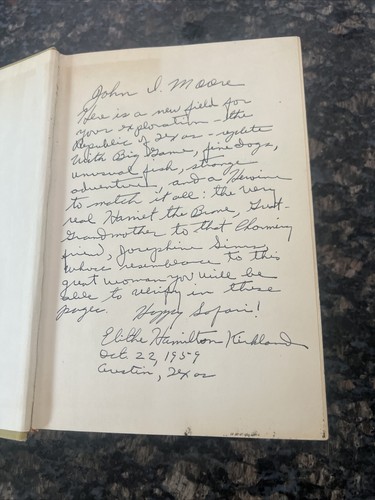 John I. Moore
Here is a new field for
your exploration - the
Republic of Texas - replete
with Big Game, fine dogs,
unusual fish, strange
adventure, and a Heroine
to match it all: the very
real Harriet the Brave, Great-
Grandmother to that charming
friend, Josephine Sims,
whose resemblance to this
great woman you will be
able to verify in these
pages. Happy Safari!
Elithe Hamilton Kirkland
Oct. 22, 1959
Austin, Texas